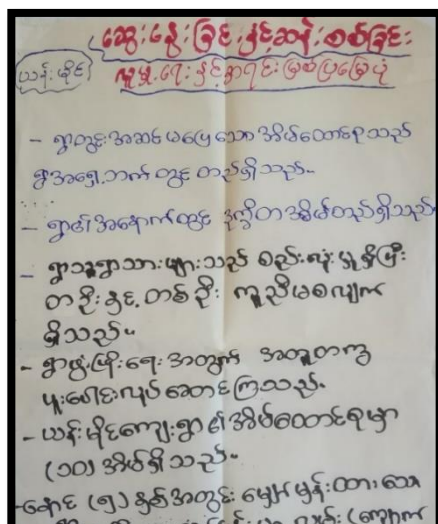 ဆွေးနွေးခြင်းနှင့်ဆန်းစစ်ခြင်း
ယန်းမိုင်
လူမှုရေးနှင့်စာရင်းမြစ်ပြမြေပုံ
- ရွာတွင်းအဆင်မပြေသောအိမ်ထောင်စုသည်
ရွာအရှေ့ဘက်တွင် တည်ရှိသည်။
- ရွာ၏အနောက်တွင် ဒုက္ခိတအိမ်တည်ရှိသည်
- ရွာသူရွာသားများသည် စည်းလုံးမှုရှိပြီး
တဦးနှင့်တစ်ဦး ကူညီမစလျက်
ရှိသည်။
- ရွာဖွံ့ဖြိုးရေးအတွက် အတူတကွ
ပူးပေါင်းလုပ်ဆောင်ကြသည်။
- ယန်းမိုင်ကျေးရွာ၏အိမ်ထောင်စုမှာ
(၁၀)အိမ်ရှိသည်။
- နောင် (၅)နှစ်အတွင်း မျှော်မှန်းထားသော